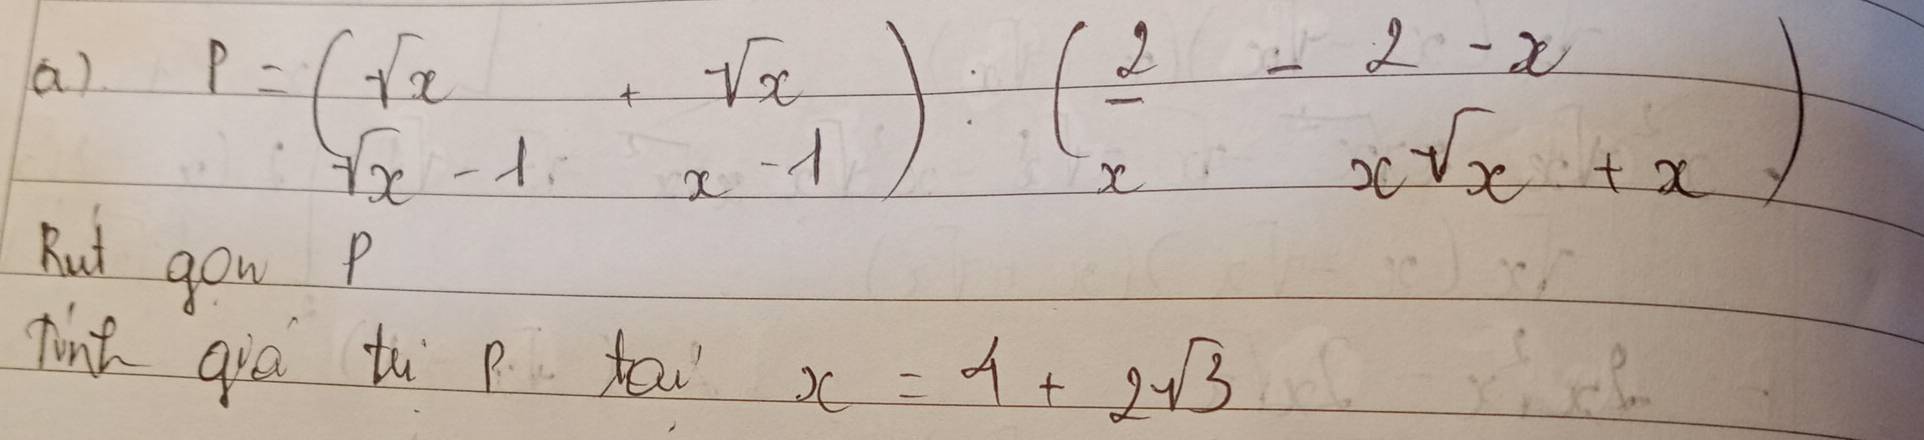 a) P = (√x/(√x - 1) + √x/(x - 1)) : (2/x - (2 - x)/(x√x + x))
Rút gọn P
Tính giá trị P tại x = 4 + 2√3